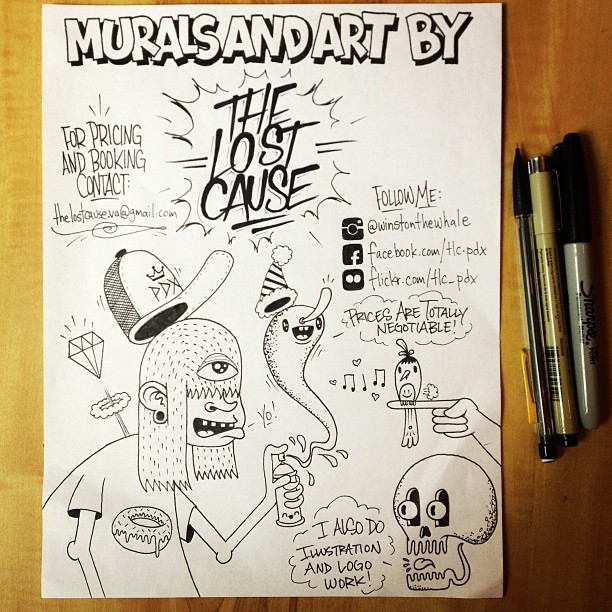 MURALS AND ART BY
THE
LOST
CAUSE
FOR PRICING
AND BOOKING
CONTACT:
thelostcause.va@gmail.com
FOLLOW ME:
@winstonthewhale
facebook.com/tlc-pdx
flickr.com/tlc_pdx
PRICES ARE TOTALLY
NEGOTIABLE!
PDX
YO!
I ALSO DO
ILLUSTRATION
AND LOGO
WORK!
Sharpie